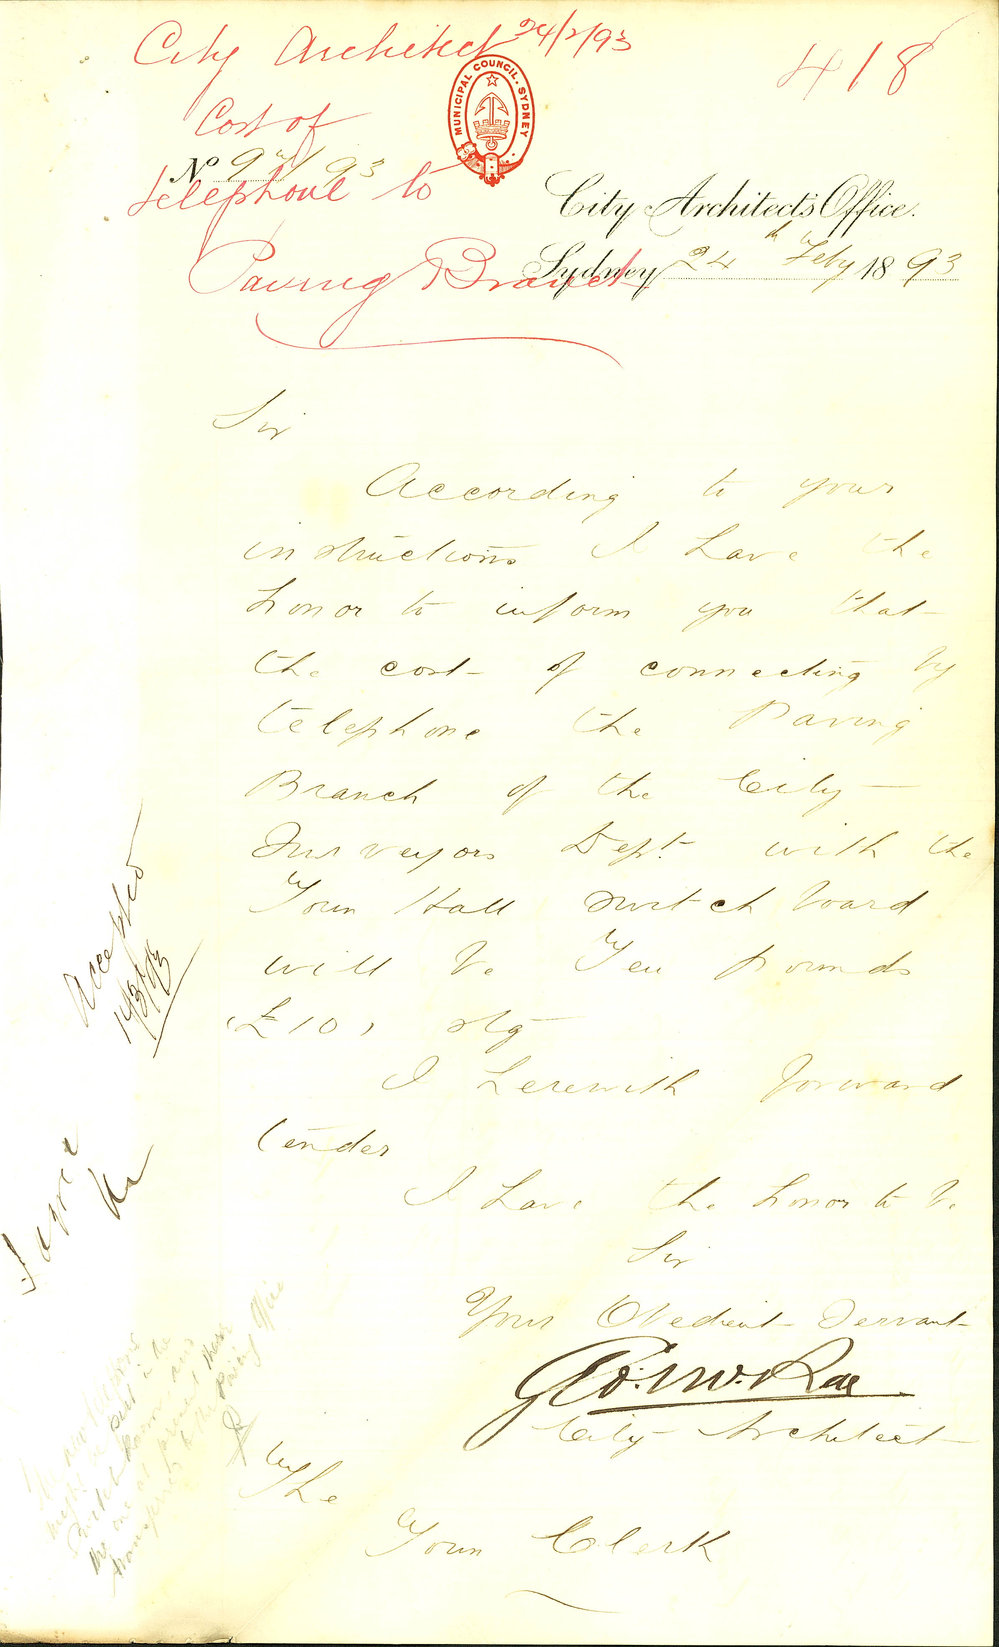 City Architect 24/2/93
418
Cost of
telephone to
Paving Branch
MUNICIPAL COUNCIL. SYDNEY
No 93
City Architect's Office.
Sydney 24th Feby 1893
Sir
According to your
instructions I have the
honor to inform you that
the cost of connecting by
telephone the Paving
Branch of the City
Surveyors Dept. with the
Town Hall switch board
will be Ten pounds
(£10) stg
I herewith forward
tender
I have the honor to be
Sir
Your Obedient Servant
Geo. McRae
City Architect
The
Town Clerk
Accepted
14/3/93
I agree
The new telephone
might be put in the
Switch Room and
the one at present there
transferred to the Paving Office